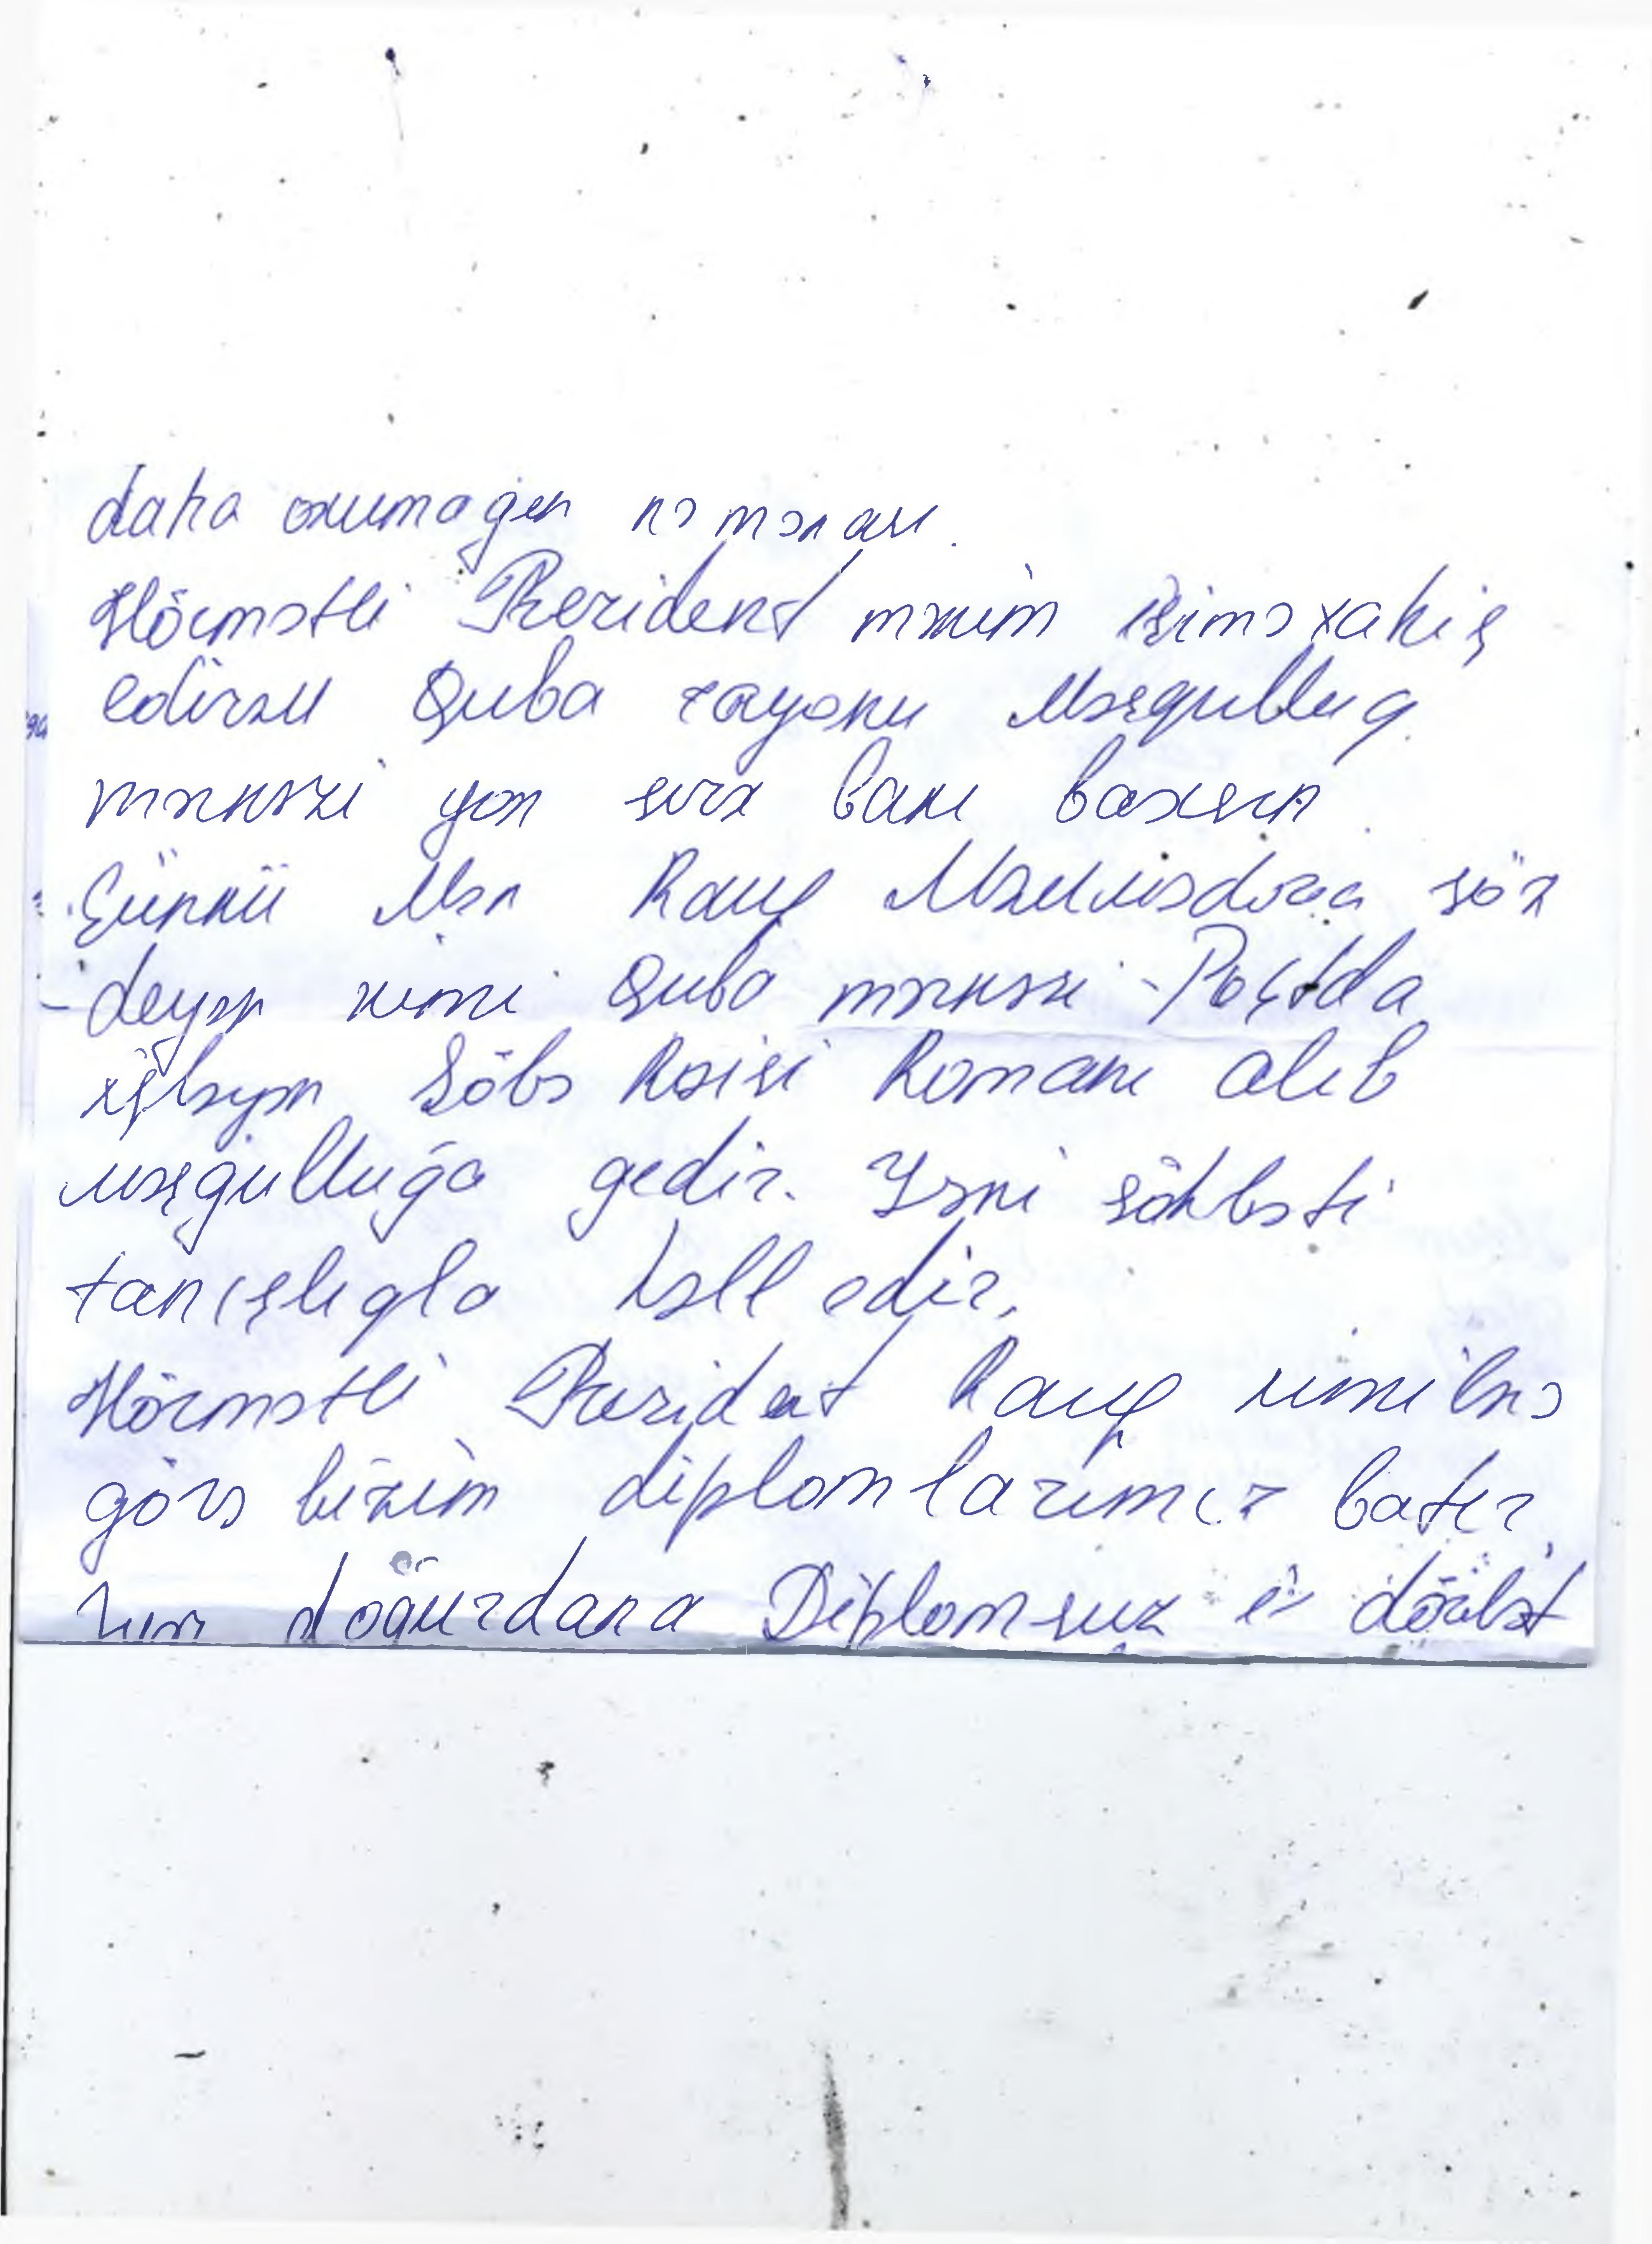 daha oxumağın nə mənası.
Hörmətli Prezident mənim işimə xahiş
edirəm Quba rayonu Məşgulluq
mərkəzi yox sizə baxsın
Çünkü Mən Rauf söz
deyən kimi Quba mərkəzi Poçtda
işləyən Söbə Rəisi Romanı alıb
məşğulluğa gedir. Yəni söhbəti
tanışlıqla həll edir.
Hörmətli Prezident Rauf kimilərə
görə bizim diplomlarımız batır.
doğurdana Diplomsuz dövlət